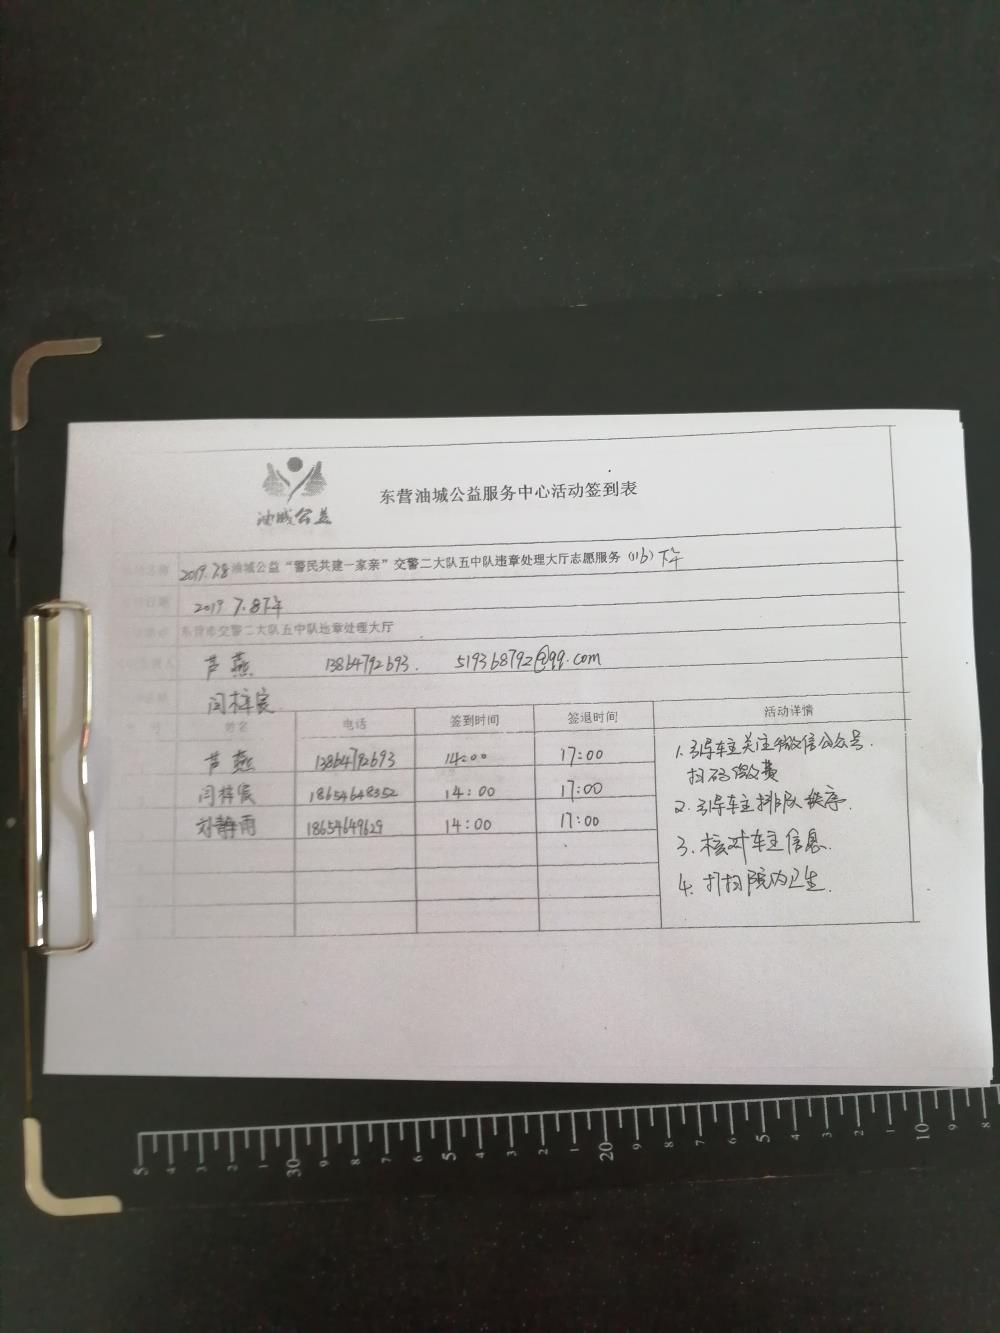 油城公益
东营油城公益服务中心活动签到表
2019.7.8 油城公益“警民共建一家亲”交警二大队五中队违章处理大厅志愿服务 (116) 下午
日期 2019 7.8下午
东营市交警二大队五中队违章处理大厅
芦燕 13864792693. 519368792@qq.com
闫梓宸
姓名 电话 签到时间 签退时间 活动详情
芦燕 13864792693 14:00 17:00
闫梓宸 18654648352 14:00 17:00
刘静雨 18654649629 14:00 17:00
1.引导车主关注微信公众号.
扫码缴费
2.引导车主排队秩序.
3.核对车主信息.
4.打扫院内卫生.
5 4 3 2 1 30 9 8 7 6 5 4 3 2 1 20 9 8 7 6 5 4 3 2 1 10 9 8